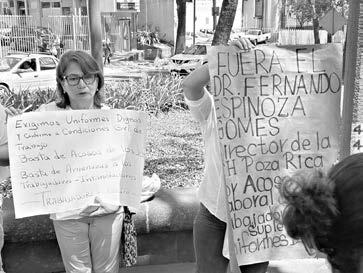 Exigimos Uniformes Dignos
y Conforme a Condiciones Gral. de
Trabajo
Basta de Acosos
Basta de Amenazas a los
Trabajadores
Trabajadores
FUERA EL
DR. FERNANDO
ESPINOZA
GOMES
Director de la
H Poza Rica
or Acos
abora
abajado
suple
iformes